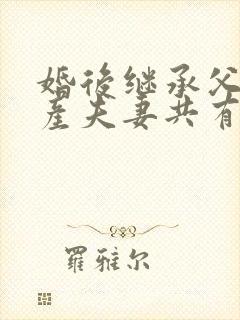 婚後继承父
産夫妻共有
羅雅尔